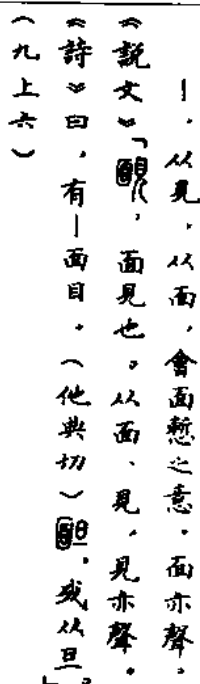 ｜，从見，从面，會面慙之意。面亦聲。
《説文》「靦，面見也。从面、見，見亦聲。
《詩》曰，有｜面目。（他典切）䩄，或从旦
（九上六）